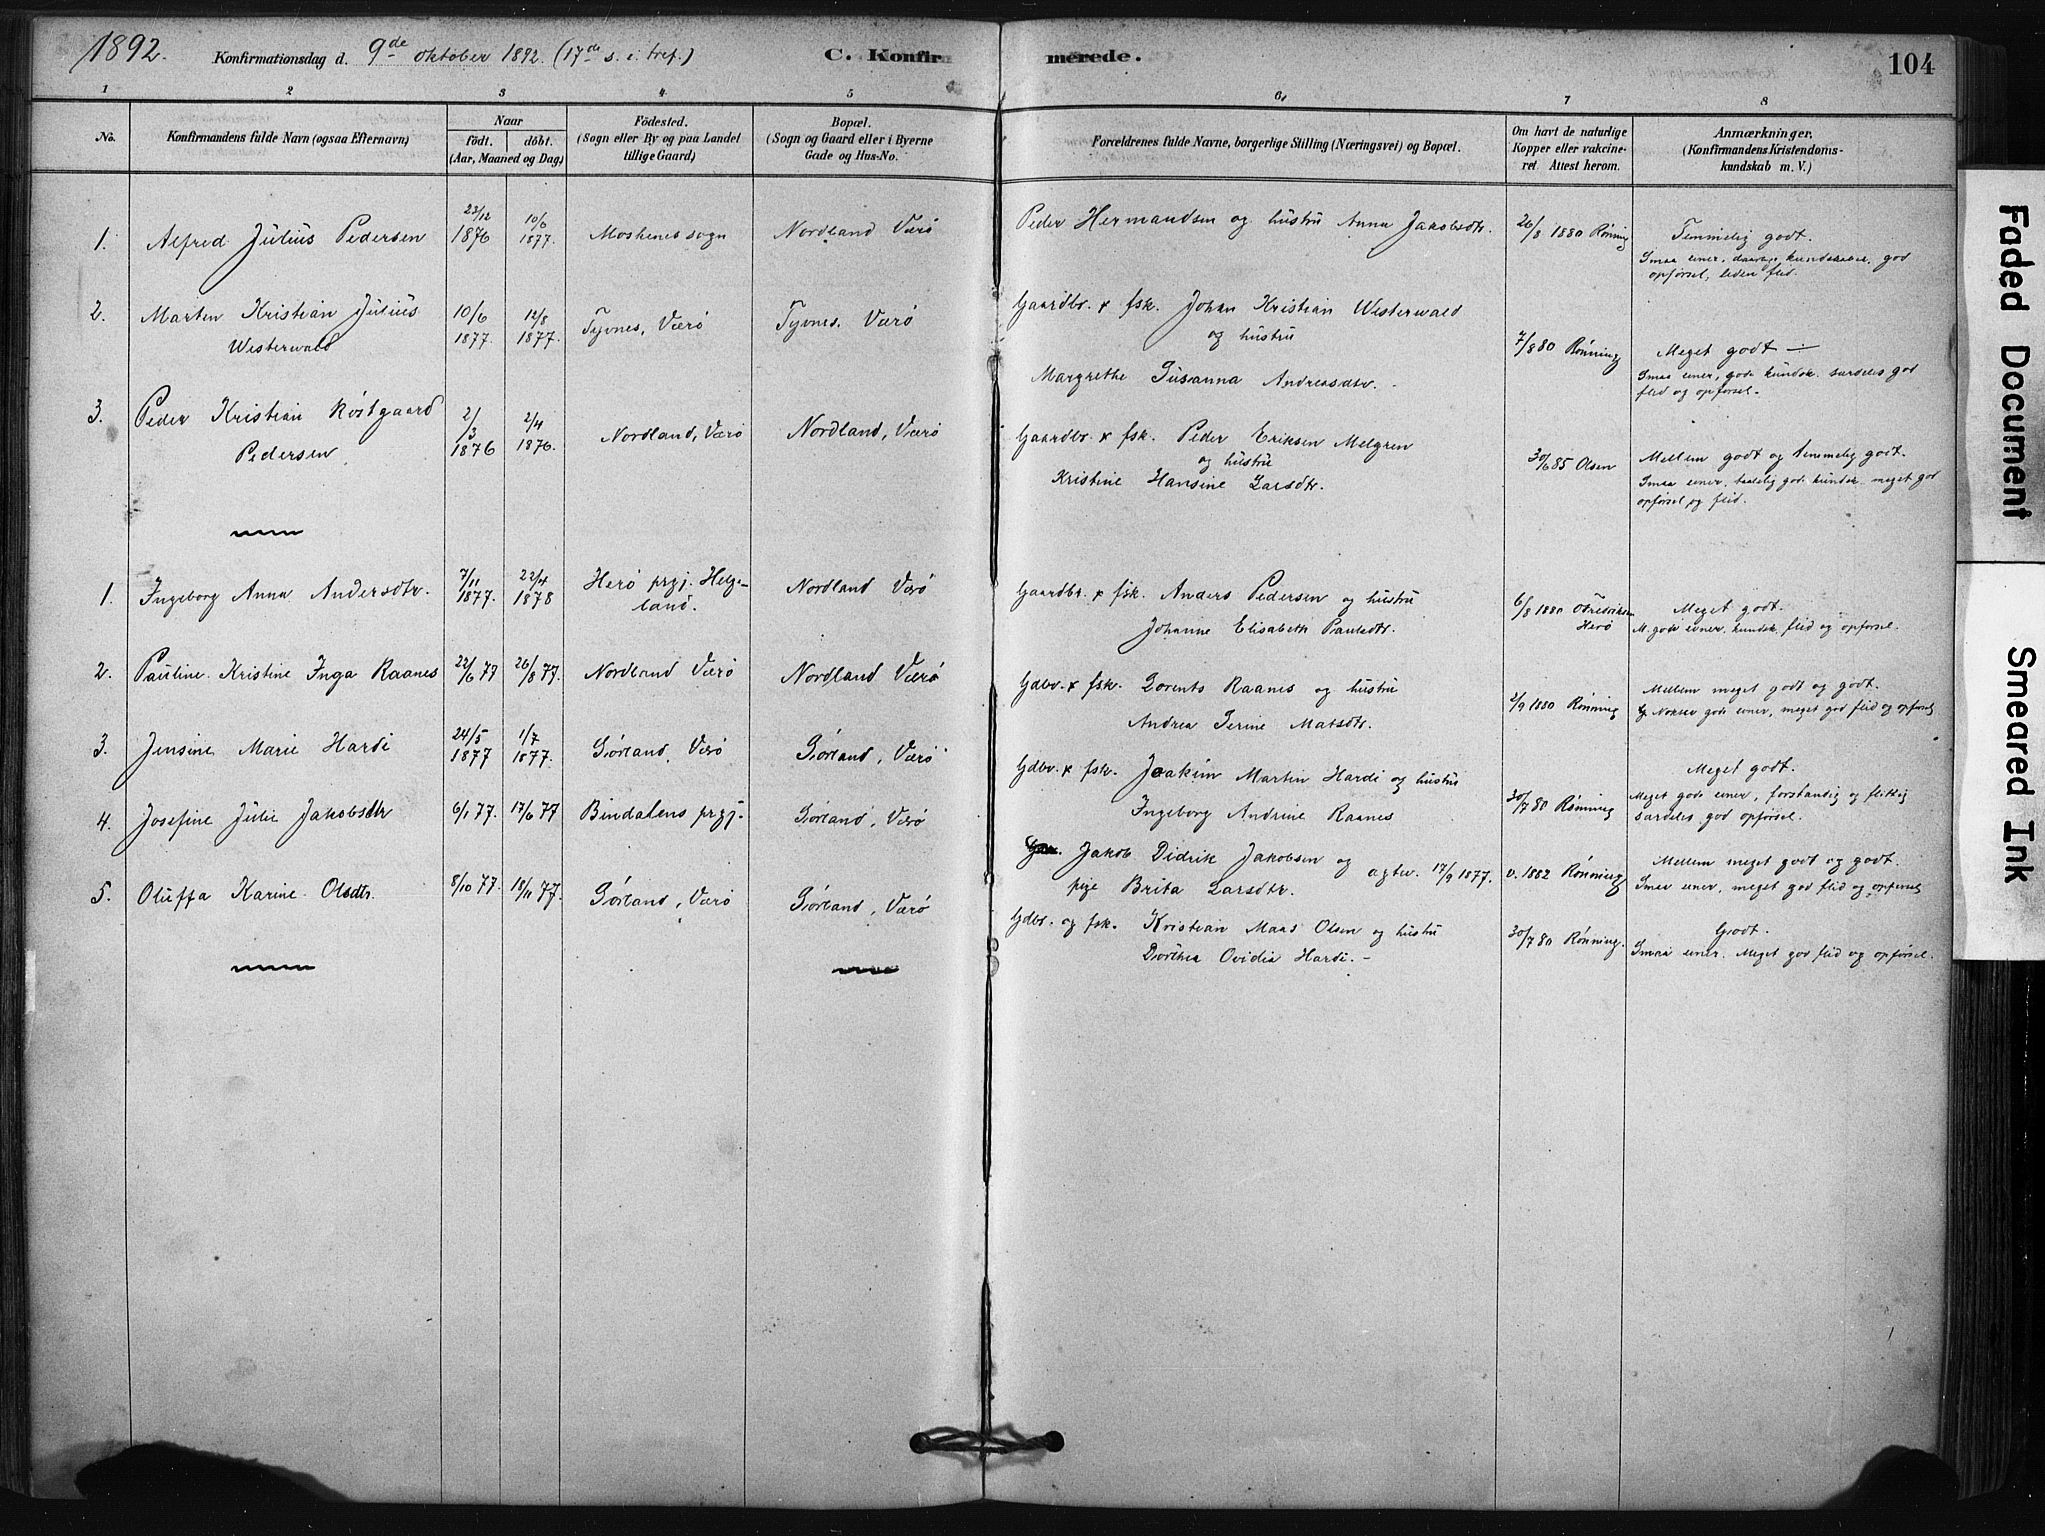 1892.
Konfirmationsdag d. 9de oktober 1892. (17de s. e. tref.)
C. Konfirmerede.
104
1 2 3 4 5 6 7 8
No.
Konfirmandens fulde Navn (ogsaa Efternavn)
Naar
födt. döbt.
(Aar, Maaned og Dag)
Födested.
(Sogn eller By og paa Landet
tillige Gaard)
Bopæl.
(Sogn og Gaard eller i Byerne
Gade og Hus-No.
Forældrenes fulde Navne, borgerlige Stilling (Næringsvei) og Bopæl.
Om havt de naturlige
Kopper eller vakcine-
ret Attest herom.
Anmærkninger,
(Konfirmandens Kristendoms-
kundskab m. V.)
1. Alfred Julius Pedersen
23/12 1876
10/6 1877.
Moskenes sogn
Nordland Værö
Peder Hermandsen og hustru Anna Jakobsdtr.
26/8 1880 Rønning
Temmelig godt.
Smaa evner, daarlige kundskaber, god
opførsel, liden flid.
2. Martin Kristian Julius
Westerwald
10/6 1877.
12/8 1877.
Tyvnes, Værö
Tyvnes, Værö
Gaardbr. & fsk. Johan Kristian Westerwald
og hustru
Margrethe Susanna Andreasdtr.
7/8 80 Rønning
Meget godt ÷
Smaa evner, gode kundsk. særdeles god
flid og opførsel.
3. Peder Kristian Röstgaard
Pedersen
2/3 1876
2/4 1876.
Nordland, Værö
Nordland, Værö
Gaardbr. & fsk. Peder Eriksen Melgren
og hustru
Kristine Hansine Larsdtr.
30/6 85 Olsen
Mellem godt og temmelig godt.
Smaa evner, taalelig gode kundsk. meget god
opførsel og flid.
1. Ingeborg Anna Andersdtr.
7/11 1877.
22/4 1878
Herö prgj. Helge-
land.
Nordland Værö
Gaardbr. & fsk. Anders Pedersen og hustru
Johanne Elisabeth Paulsdtr.
6/8 1880 O Fredriksen
Herö
Meget godt.
M. gode evner, kundsk, flid og opførsel.
2. Pauline Kristine Inga Raanes
22/6 77
26/8 77.
Nordland Værö
Nordland Værö
Gdbr. & fsk. Lorents Raanes og hustru
Andrea Serine Matsdtr.
2/9 1880 Rønning
Mellem meget godt og godt.
Nokso gode evner, meget god flid og opførsel
3. Jensine Marie Hardi
24/5 1877
1/7 1877.
Sörland, Værö
Sörland, Værö
Gdbr. & fsk. Joakim Martin Hardi og hustru
Ingeborg Andrine Raanes
30/7 80 Rønning
Meget godt.
Meget gode evner, forstandig og flittig
særdeles god opførsel.
4. Josefine Julie Jakobsdtr
6/1 77.
17/6 77
Bindalens prgj.
Sörland, Værö
Jakob Didrik Jakobsen og
pige Brita Larsdtr. ægtev. 17/9 1877.
v. 1882 Rønning
Mellem meget godt og godt.
Smaa evner, meget god flid og opførsel
5. Oluffa Karine Olsdtr.
8/10 77.
18/11 77.
Sörland, Værö
Sörland, Værö
Gdbr. og fsk. Kristian Maas Olsen og hustru
Dorthea Ovidia Hardi. –
30/7 80 Rønning.
Godt.
Smaa evner. Meget god flid og opførsel.
Faded Document
Smeared Ink